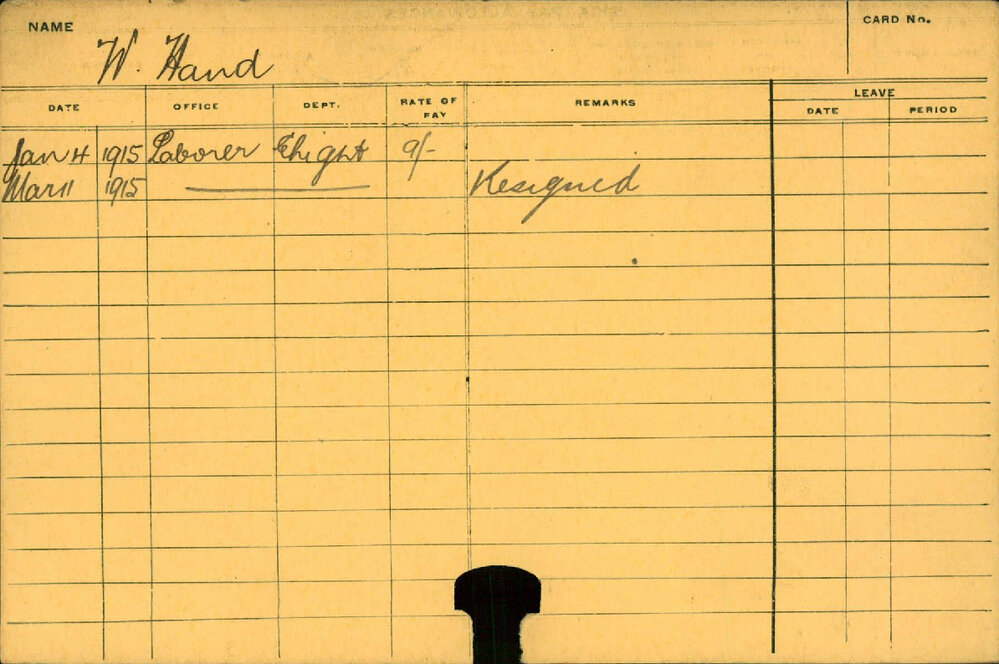 NAME W. Hand CARD No.
DATE OFFICE DEPT. RATE OF PAY REMARKS LEAVE
DATE PERIOD
Jan 4 1915 Laborer Elright 9/-
Mar 11 1915 Resigned